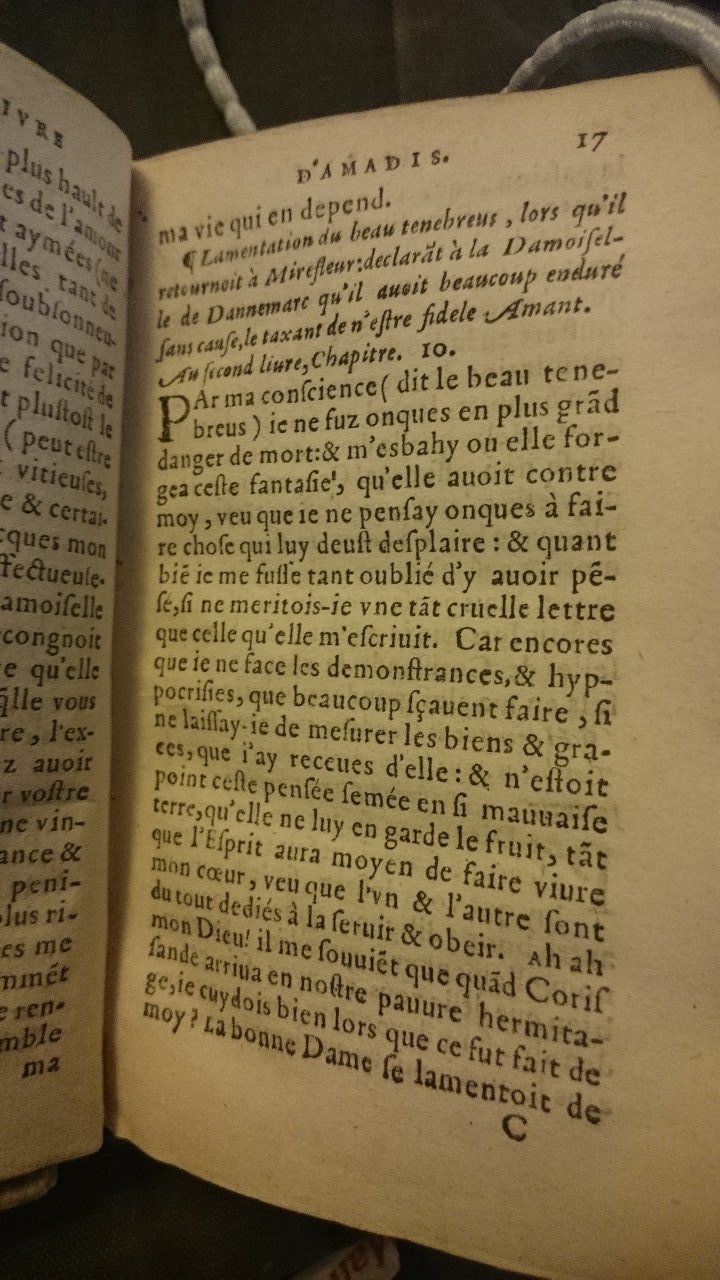 IVRE
plus hault de
es de l'amour
t aymées (ne
lles, tant de
soubsonneu-
ion que par
e felicité de
t plustost le
( peut estre
vitieuses,
e & certai-
cques mon
ffectueuse-
amoiselle
congnoit
e qu'elle
q̃lle vous
re, l'ex-
z auoit
r vostre
ne vin-
ance &
peni-
lus ri-
es me
mmét
e ren-
mble
ma
D'AMADIS. 17
ma vie qui en depend.
¶ Lamentation du beau tenebreus, lors qu'il
retournoit à Mirefleur: declarãt à la Damoisel-
le de Dannemarc qu'il auoit beaucoup enduré
sans cause, le taxant de n'estre fidele Amant.
Au second liure, Chapitre. 10.
PAr ma conscience ( dit le beau tene-
breus ) ie ne fuz onques en plus grãd
danger de mort: & m'esbahy ou elle for-
gea ceste fantasie', qu'elle auoit contre
moy, veu que ie ne pensay onques à fai-
re chose qui luy deust desplaire : & quant
biẽ ie me fusse tant oublié d'y auoir pẽ-
sé, si ne meritois-ie vne tãt cruelle lettre
que celle qu'elle m'escriuit. Car encores
que ie ne face les demonstrances, & hyp-
pocrisies, que beaucoup sçauent faire, si
ne laissay-ie de mesurer les biens & gra-
ces, que i'ay receues d'elle: & n'estoit
point ceste pensée semée en si mauuaise
terre, qu'elle ne luy en garde le fruit, tãt
que l'Esprit aura moyen de faire viure
mon cœur, veu que l'vn & l'autre sont
du tout dediés à la seruir & obeir. Ah ah
mon Dieu! il me souuiẽt que quãd Coris
sande arriua en nostre pauure hermita-
ge, ie cuydois bien lors que ce fut fait de
moy? La bonne Dame se lamentoit de
C